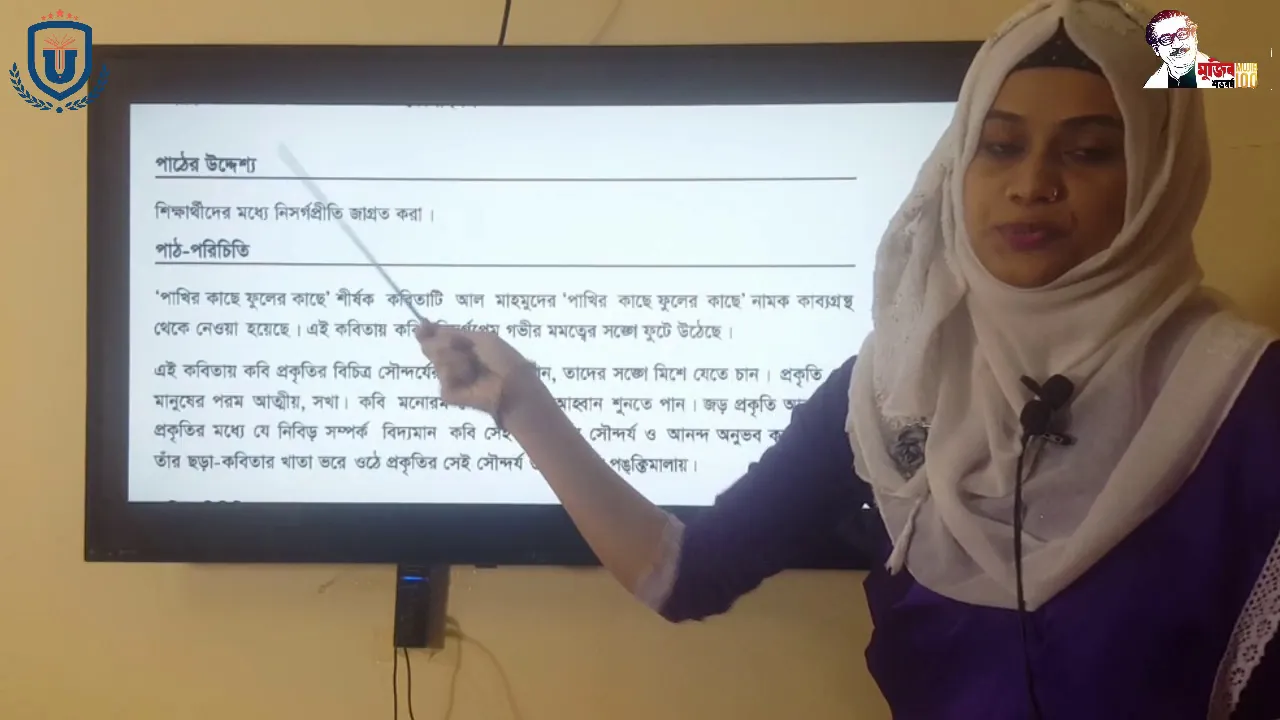 পাঠের উদ্দেশ্য
শিক্ষার্থীদের মধ্যে নিসর্গপ্রীতি জাগ্রত করা ।
পাঠ-পরিচিতি
‘পাখির কাছে ফুলের কাছে’ শীর্ষক কবিতাটি আল মাহমুদের ‘পাখির কাছে ফুলের কাছে’ নামক কাব্যগ্রন্থ
থেকে নেওয়া হয়েছে । এই কবিতায় গভীর মমত্বের সঙ্গে ফুটে উঠেছে ।
এই কবিতায় কবি প্রকৃতির বিচিত্র তাদের সঙ্গে মিশে যেতে চান । প্রকৃতি
মানুষের পরম আত্মীয়, সখা। কবি আহ্বান শুনতে পান । জড় প্রকৃতি
প্রকৃতির মধ্যে যে নিবিড় সম্পর্ক বিদ্যমান কবি সৌন্দর্য ও আনন্দ অনুভব
তাঁর ছড়া-কবিতার খাতা ভরে ওঠে প্রকৃতির সেই সৌন্দর্য পঙ্‌ক্তিমালায় ।
U
মুজিব
শতবর্ষ
100